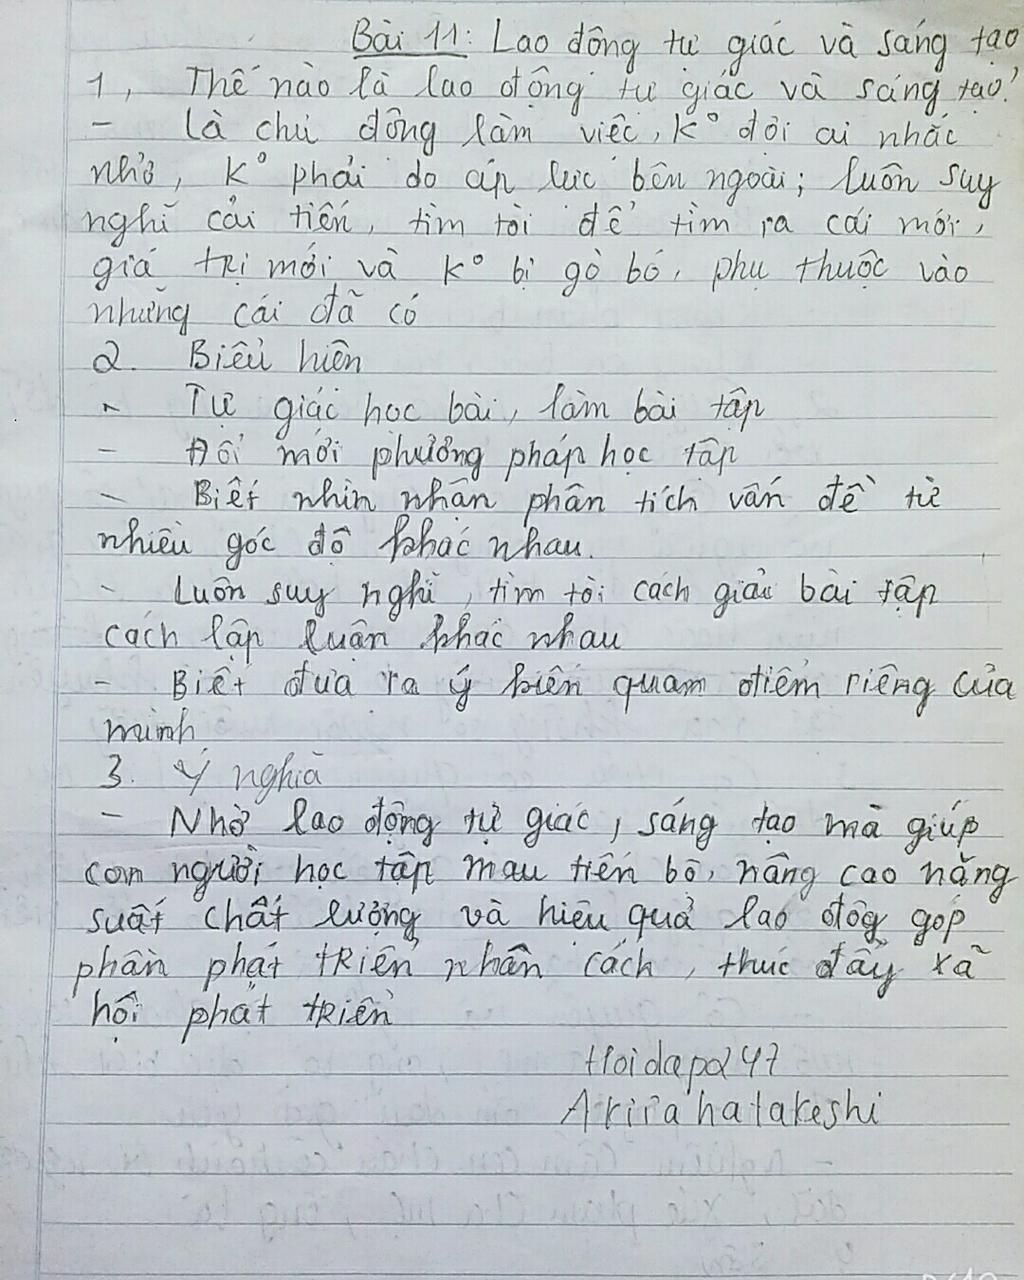 Bài 11: Lao động tự giác và sáng tạo
1, Thế nào là lao động tự giác và sáng tạo?
- Là chủ động làm việc, K° đợi ai nhắc
nhở, K° phải do áp lực bên ngoài; luôn suy
nghĩ cải tiến, tìm tòi để tìm ra cái mới,
giá trị mới và K° bị gò bó, phụ thuộc vào
những cái đã có
2. Biểu hiện
- Tự giác học bài, làm bài tập
- Đổi mới phương pháp học tập
- Biết nhìn nhận phân tích vấn đề từ
nhiều góc độ khác nhau.
- Luôn suy nghĩ, tìm tòi cách giải bài tập
cách lập luận khác nhau
- Biết đưa ra ý kiến quam điểm riêng của
mình
3. Ý nghĩa
- Nhờ lao động tự giác, sáng tạo mà giúp
con người học tập mau tiến bộ, nâng cao năng
suất chất lượng và hiệu quả lao độg góp
phần phát triển nhân cách, thúc đẩy xã
hội phát triển
Hoidap247